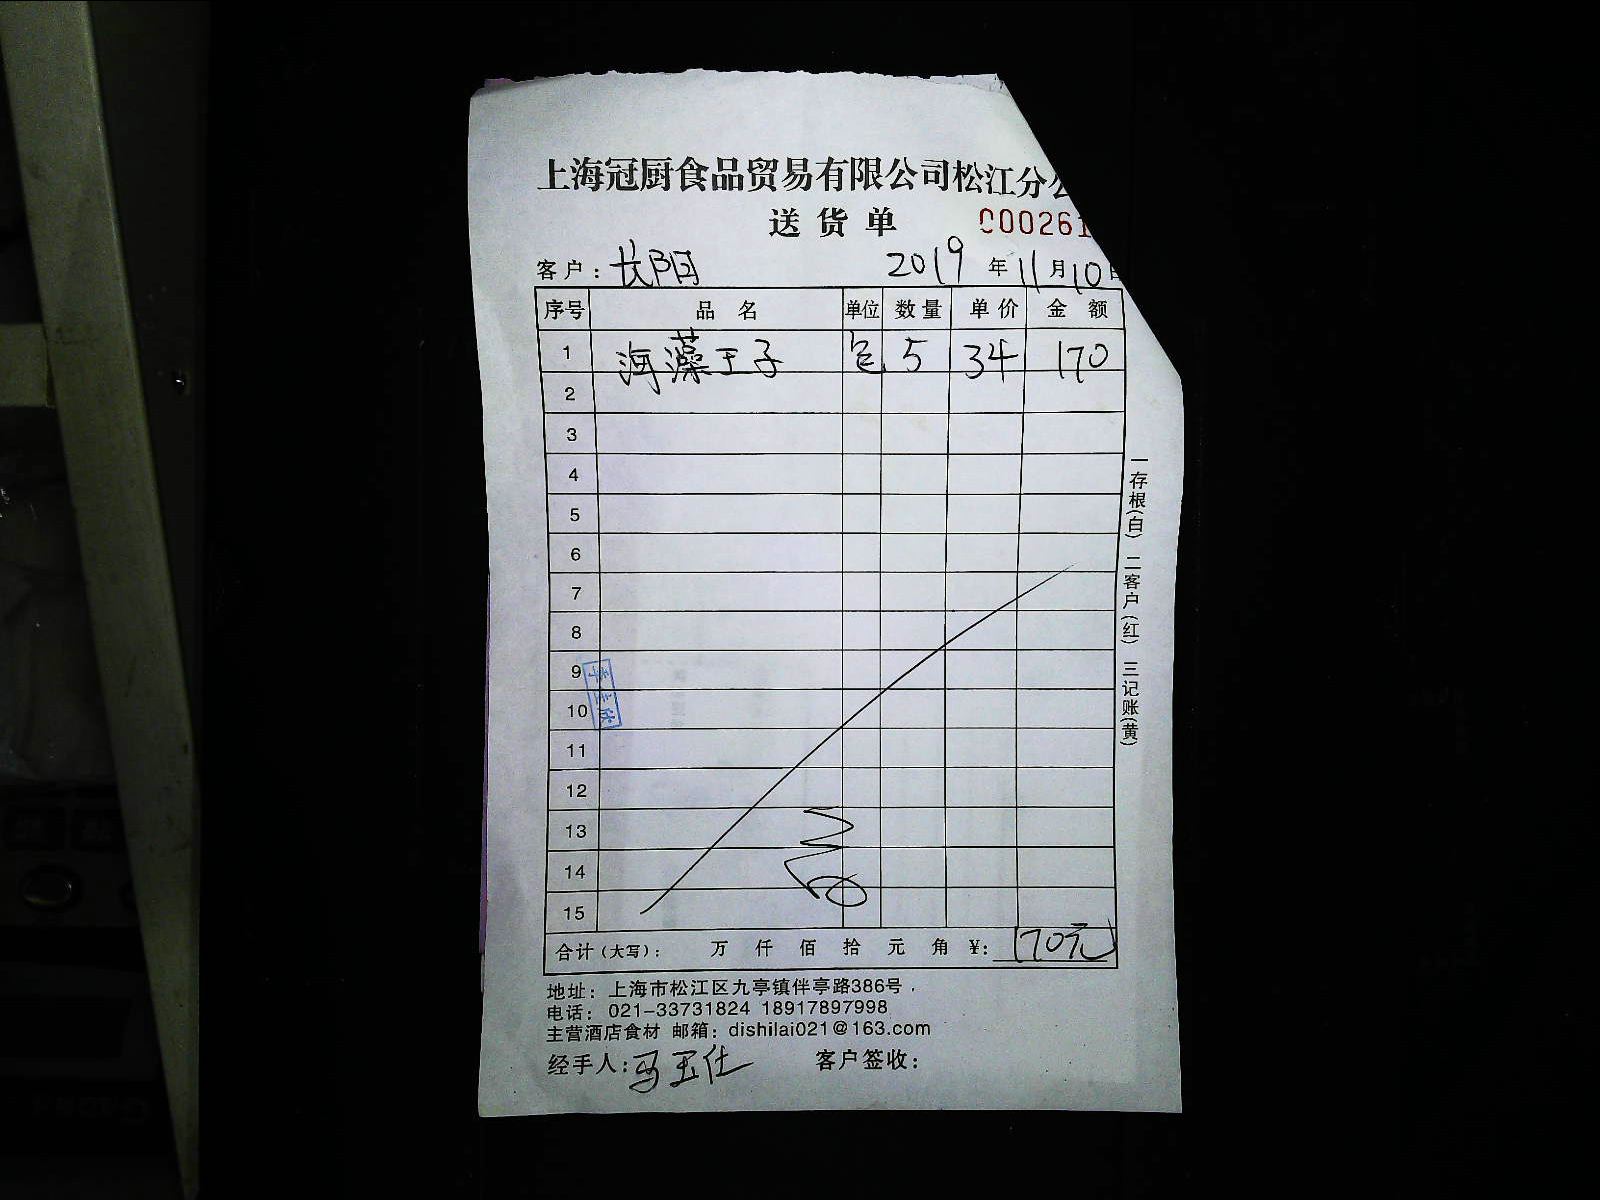 上海冠厨食品贸易有限公司松江分公
送货单 C00261
客户：长阳 2019年11月10日
序号 品名 单位 数量 单价 金额
1 海藻干子 包 5 34 170
2
3
4
5
6
7
8
9
10
11
12
13
14
15
合计（大写）： 万 仟 佰 拾 元 角 ¥：170元
地址：上海市松江区九亭镇伴亭路386号
电话：021-33731824 18917897998
主营酒店食材 邮箱：dishilai021@163.com
经手人：马玉仕 客户签收：
一存根(白) 二客户(红) 三记账(黄)